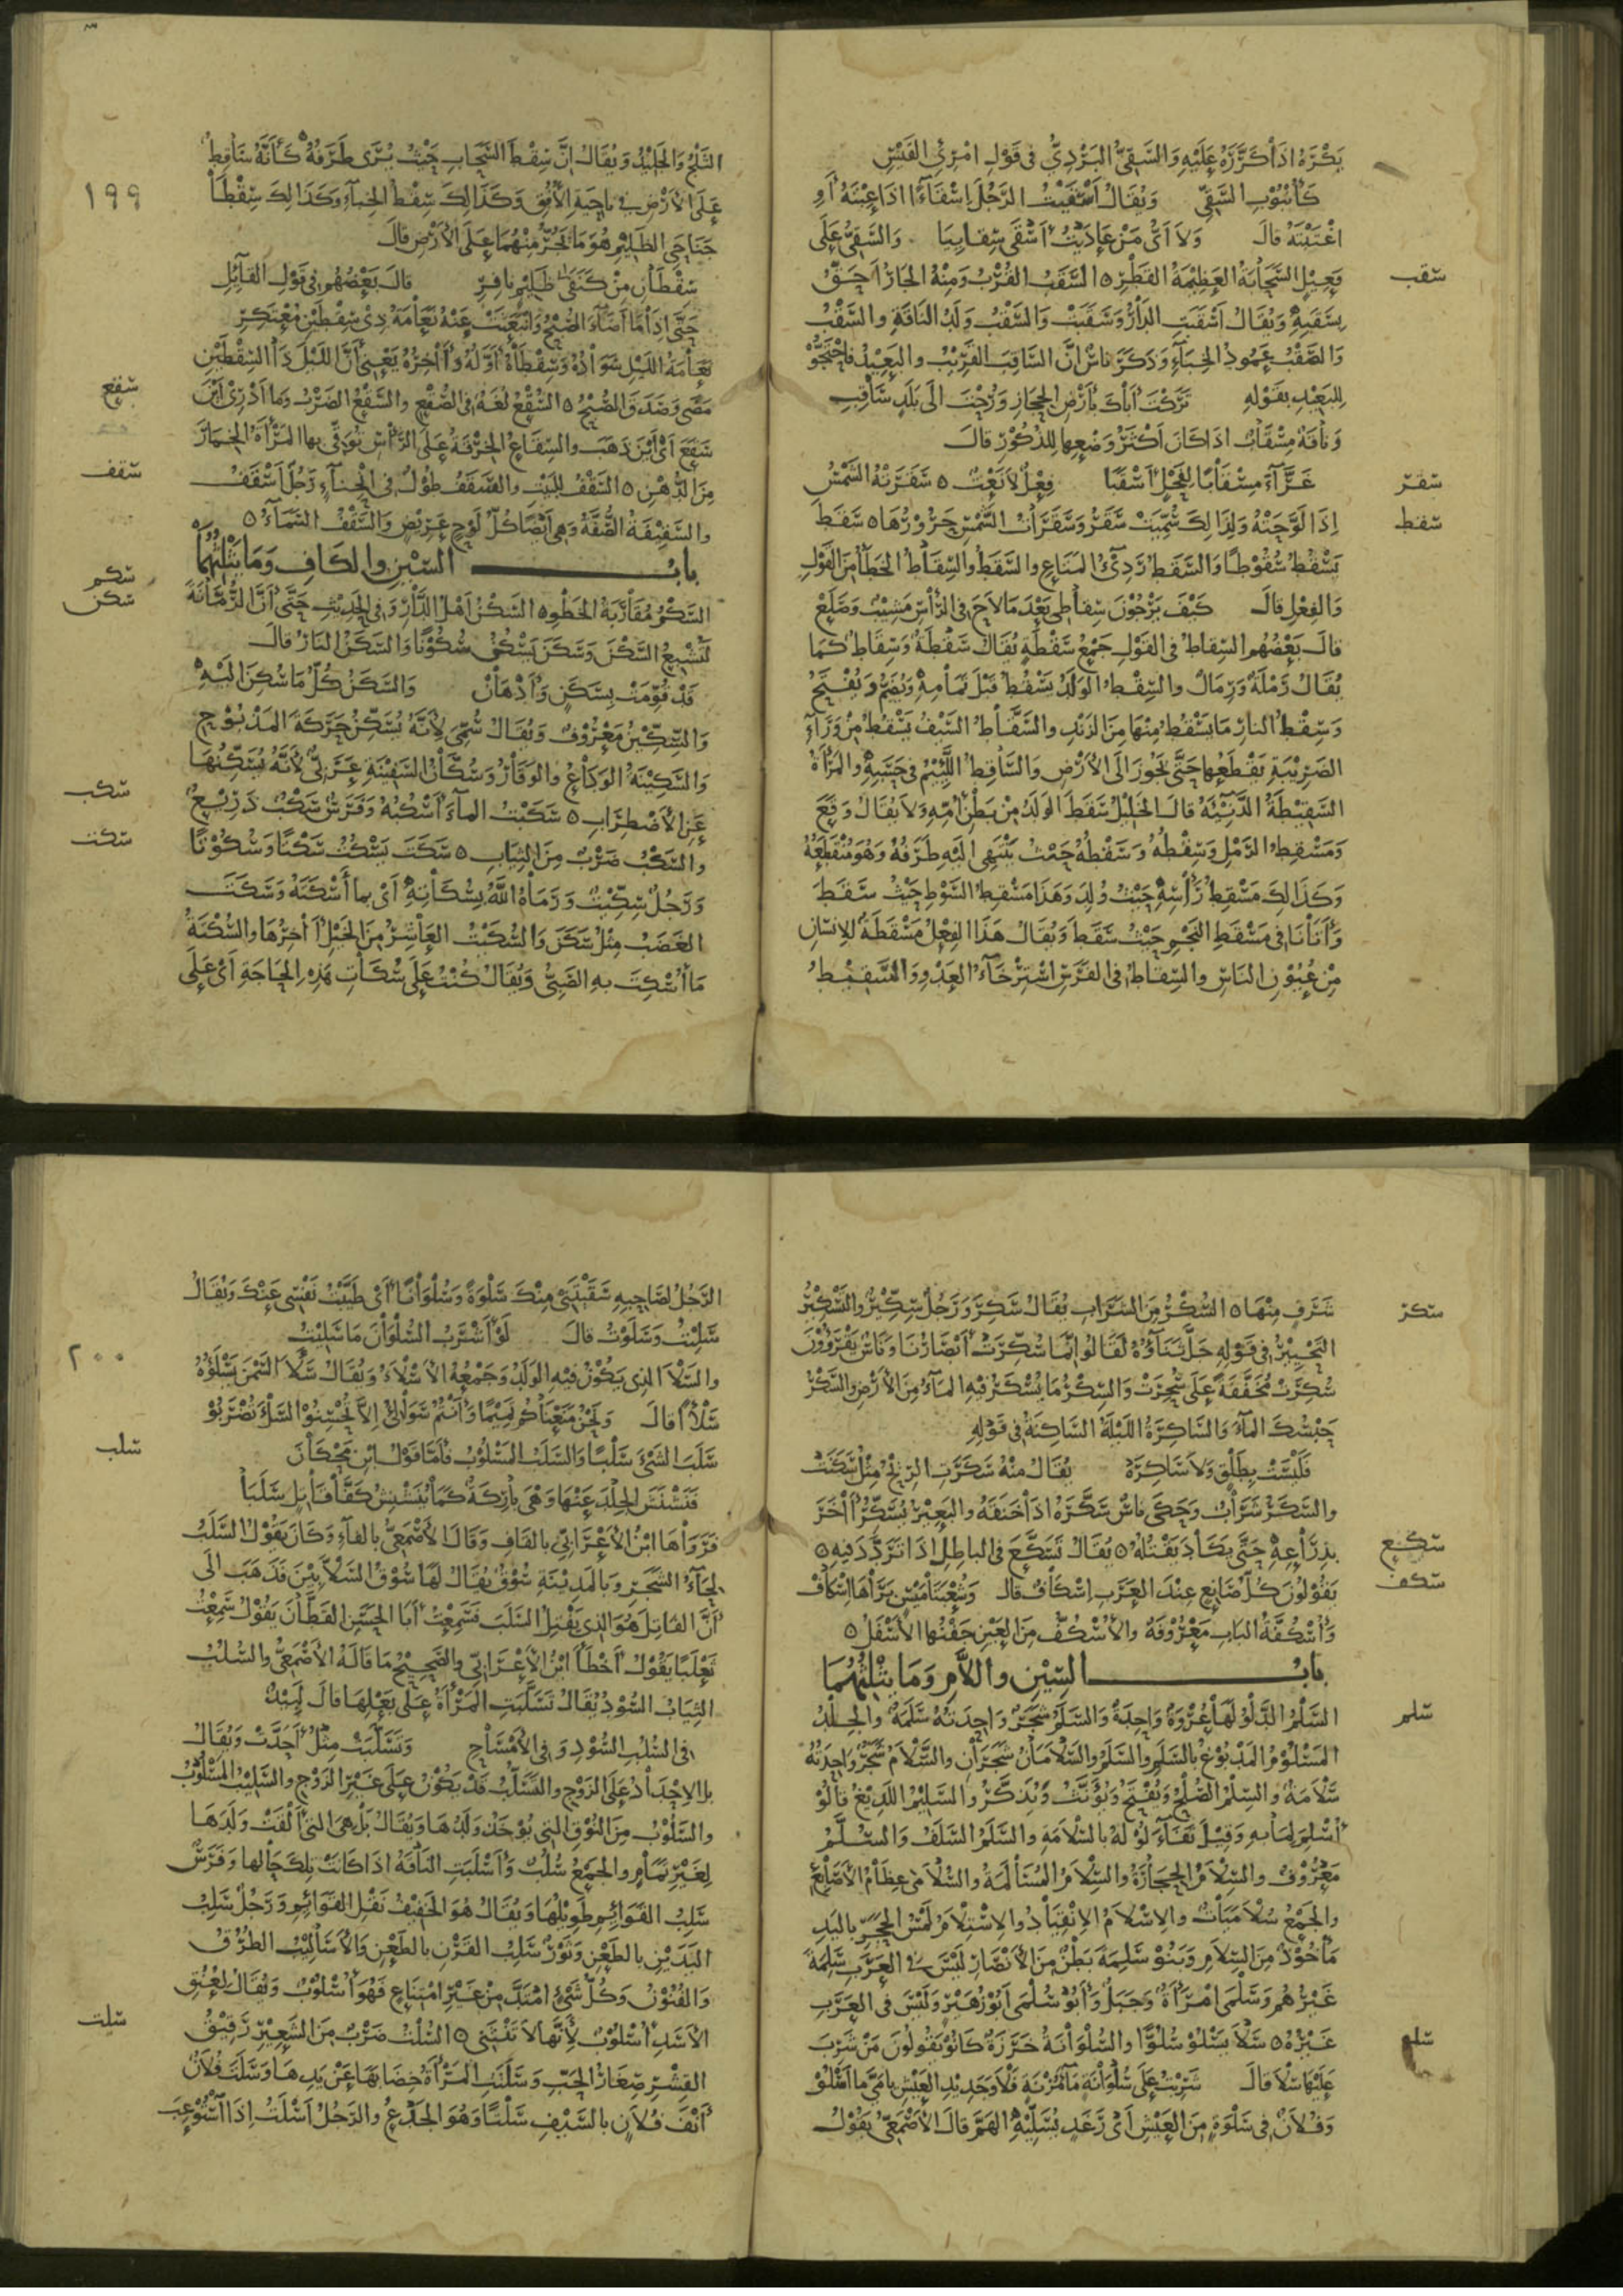 يكرهه اذا كرره عليه والسقي البردي في قول امرئ القيس
كأنبوب السقي ويقال اسقيت الرجل اسقاء اذا عبته أو
اغتبته قال ولا اي من عاديت اسقى سقائيا والسقي على
سقب
فعيل السحابة العظيمة القطر ٥ السقب القرب ومنه الجار احق
بسقبه ويقال اسقبت الدار وسقبت والسقب ولد الناقة والسقب
والصقب عمود الخباء وذكر ناس ان الساقب القريب والبعيد فاحتجوا
للبعيد بقوله تركت اباك بارض الحجاز ورحت الى بلد ساقب
وناقة مسقاب اذا كان اكثر وضعها للذكور قال
سقر
غراء مسقابا لفحل اسقبا فعل لا نعت ٥ سقرته الشمس
سقط
اذا لوحته ولذلك سميت سقر وسقرات الشمس حرورها ٥ سقط
يسقط سقوطا والسقط رديء المتاع والسقط والسقاط الخطأ من القول
والفعل قال كيف يرجون سقاطي بعد ما لاح في الرأس مشيب وصلع
قال بعضهم السقاط في القول جمع سقطة يقال سقطة وسقاط كما
يقال رملة ورمال والسقط الولد يسقط قبل تمامه ويضم ويفتح
وسقط النار ما يسقط منها من الزند والسقاط السيف يسقط من وراء
الضريبة يقطعها حتى يجوز الى الارض والساقط اللئيم في حسبه والمرأة
السقيطة الدنيئة قال الخليل سقط الولد من بطن أمه ولا يقال وقع
ومسقط الرمل وسقطه وسقطه حيث ينتهي اليه طرفه وهو منقطعه
وكذلك مسقط رأسه حيث ولد وهذا مسقط السوط حيث سقط
وأتانا في مسقط النجم حيث سقط ويقال هذا الفعل مسقطة للانسان
من عيون الناس والسقاط في الفرس استرخاء العدو والسقيط
١٩٩
الثلج والجليد ويقال ان سقط السحاب حيث يرى طرفه كأنه ساقط
على الارض في ناحية الأفق وكذلك سقط الخباء وكذلك سقطا
جناحي الظليم هو ما يجر منهما على الارض قال
سقطان من كنفي ظليم نافر قال بعضهم في قول القائل
حتى اذا ما أضاء الصبح وانبعثت عنه نعامة ذي سقطين معتكر
نعامة الليل سواده وسقطاه أوله وآخره يعني أن الليل ذا السقطين
سقع
مضى وصدق الصبح ٥ السقع لغة في الصقع والسقع الضرب وما أدري أين
سقع أي أين ذهب والسقاع الخرقة على الرأس توقي بها المرأة الخمار
سقف
من الدهن ٥ السقف للبيت والسقف طول في انحناء رجل أسقف
والسقيفة الصفة وهي أيضا كل لوح عريض والسقف السماء ٥
باب السين والكاف وما يثلثهما
سكم
سكن
السكم مقاربة الخطو ٥ السكن أهل الدار وفي الحديث حتى أن الرمانة
لتشبع السكن وسكن يسكن سكونا والسكن النار قال
قد قومت بسكن وأدهان والسكن كل ما سكن اليه
والسكين معروف ويقال سمي لأنه يسكن حركة المذبوح
والسكينة الوداع والوقار وسكان السفينة عربي لأنه يسكنها
سكب
عن الاضطراب ٥ سكبت الماء أسكبه وفرس سكب ذريع
سكت
والسكب ضرب من الثياب ٥ سكت يسكت سكتا وسكوتا
ورجل سكيت ورماه الله بسكاته أي بما أسكته وسكت
الغضب مثل سكن والسكيت العاشر من الخيل آخرها والسكتة
ما أسكت به الصبي ويقال كنت على سكات هذه الحاجة أي على
سكر
شرف منها ٥ السكر من الشراب يقال سكر ورجل سكير والتسكير
التحيير في قوله جل ثناؤه لقالوا انما سكرت أبصارنا وناس يقرؤون
سكرت مخففة على سحرت والسكر ما يسكر فيه الماء من الأرض والسكر
حبسك الماء والساكرة الليلة الساكنة في قوله
فليست بطلق ولا ساكرة يقال منه سكرت الريح مثل سكنت
والسكر شراب وحكى ناس سكره اذا خنقه والبعير يسكر آخر
سكع
بذراعه حتى يكاد يقتله ٥ يقال تسكع في الباطل اذا تردد فيه ٥
سكف
يقولون كل صانع عند العرب اسكاف قال وشعبتا ميس براها اسكاف
وأسكفة الباب معروفة والأسكف من العين جفنها الأسفل ٥
باب السين واللام وما يثلثهما
سلم
السلم الدلو لها عروة واحدة والسلم شجر واحدته سلمة والجلد
المسلوم المدبوغ بالسلم والسلم والسلامان شجران والسلام شجر واحدته
سلامة والسلم الصلح ويفتح ويؤنث ويذكر والسليم اللديغ قالوا
أسلم لما به وقيل تفاءلوا له بالسلامة والسلم السلف والسلم
معروف والسلام الحجارة والسلام المسالمة والسلامى عظام الأصابع
والجمع سلاميات والاسلام الانقياد والاستلام لمس الحجر باليد
مأخوذ من السلام وبنو سلمة بطن من الأنصار ليس في العرب سلمة
غيرهم وسلمى امرأة وجبل وأبو سلمى أبو زهير وليس في العرب
سلو
غيره ٥ سلا يسلو سلوا والسلوانة خرزة كانوا يقولون من شرب
عليها سلا قال شربت على سلوانة ماء مزنة فلا وجديد العيش يا مي ما أسلو
وفلان في سلوة من العيش أي رغد يسليه الهم قال الأصمعي يقول
٢٠٠
الرجل لصاحبه سقيتني منك سلوة وسلوانا أي طيبت نفسي عنك ويقال
سليت وسلوت قال لو أشرب السلوان ما سليت
والسلا الذي يكون فيه الولد وجمعه الأسلاء ويقال سلأ السمن يسلؤه
سلأ قال ونحن منعناكم تميما وأنتم سوالئ الا تحسنوا السلء تضربوا
سلب
سلب الشيء سلبا والسلب المسلوب فأما قول ابن محكان
فنشنش الجلد عنها وهي باركة كما ينشنش كفا فاتل سلبا
فرواها ابن الأعرابي بالقاف وقال الأصمعي بالفاء وكان يقول السلب
لحاء الشجر وبالمدينة سوق يقال لها سوق السلابين فذهب الى
أن الفاتل هو الذي يفتل السلب فسمعت أبا الحسن القطان يقول سمعت
ثعلبا يقول أخطأ ابن الأعرابي والصحيح ما قاله الأصمعي والسلب
الثياب السود يقال تسلبت المرأة على بعلها قال لبيد
في السلب السود وفي الأمساح وتسلبت مثل أحدت ويقال
بل الاحداد على الزوج والتسلب قد يكون على غير الزوج والسليب المسلوب
والسلوب من النوق التي يؤخذ ولدها ويقال بل هي التي ألقت ولدها
لغير تمام والجمع سلب وأسلبت الناقة اذا كانت تلك حالها وفرس
سلب القوائم طويلها ويقال هو الخفيف نقل القوائم ورجل سلب
اليدين بالطعن وثور سلب القرن بالطعن والأساليب الطرق
والفنون وكل شيء امتد من غير امتناع فهو أسلوب ويقال لعنق
سلت
الأسد أسلوب لأنها لا تنثني ٥ السلت ضرب من الشعير رقيق
القشر صغار الحب وسلتت المرأة خضابها عن يدها وسلت فلان
أنف فلان بالسيف سلتا وهو الجدع والرجل أسلت اذا استوعب